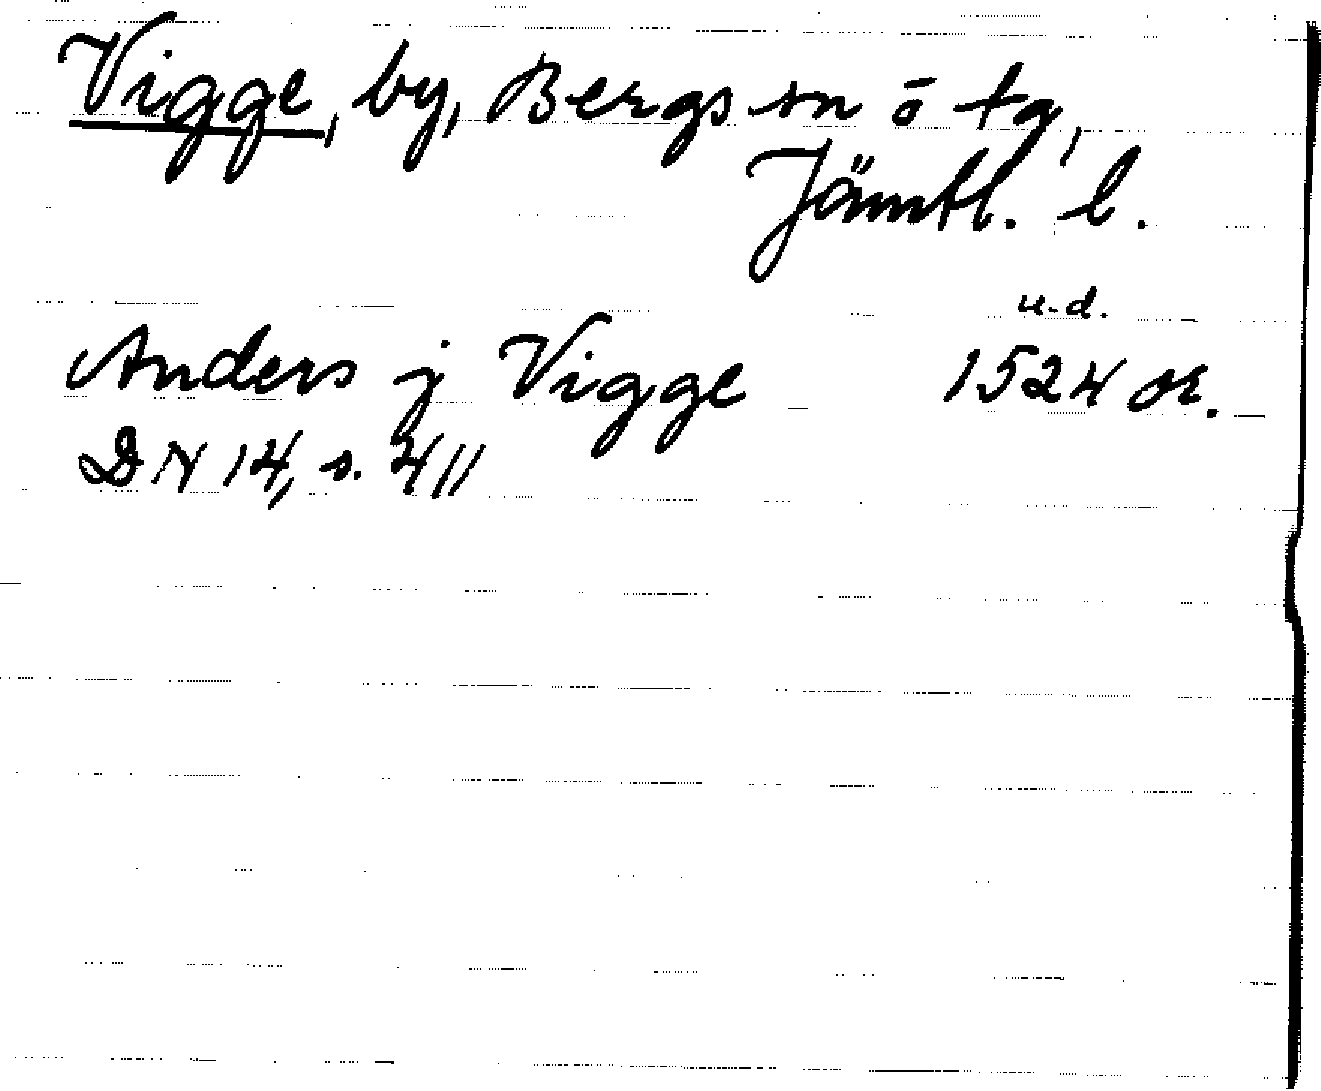 Vigge, by, Bergs sn ō tg,
Jämtl. l.
u.d.
Anders j Vigge 1524 or.
DN 14, s. 411